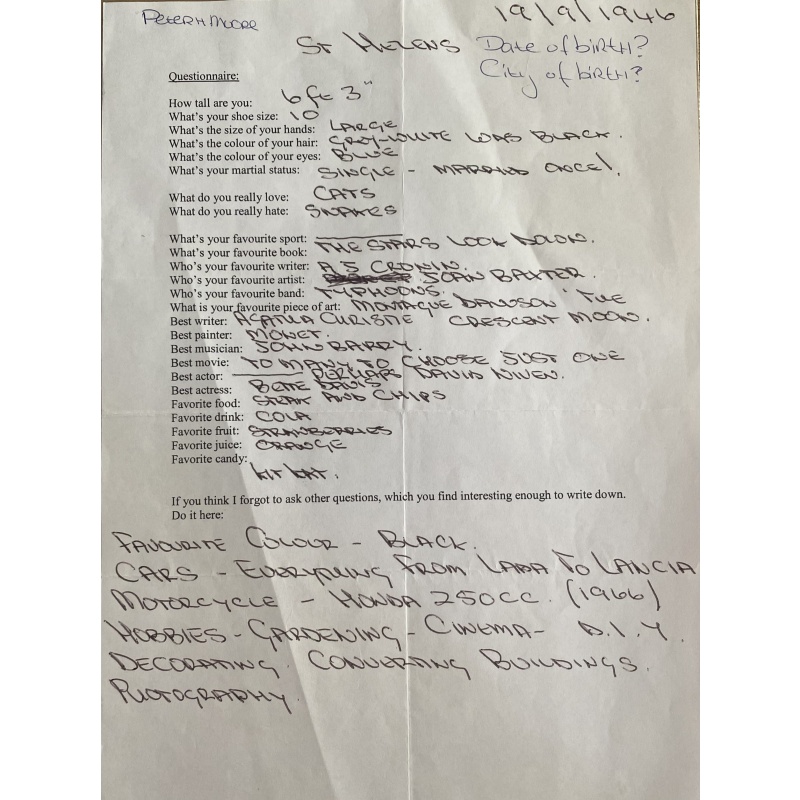 PETER H MOORE
19/9/1946
ST HELENS Date of birth?
City of birth?
Questionnaire:
How tall are you: 6 ft 3"
What's your shoe size: 10
What's the size of your hands: LARGE
What's the colour of your hair: GREY-WHITE WAS BLACK.
What's the colour of your eyes: BLUE
What's your martial status: SINGLE - MARRIED ONCE!.
What do you really love: CATS
What do you really hate: SNAKES
What's your favourite sport:
What's your favourite book: THE STARS LOOK DOWN.
Who's your favourite writer: A J CRONIN.
Who's your favourite artist: JOAN BAXTER.
Who's your favourite band: TYPHOONS.
What is your favourite piece of art: MONTAGUE DAWSON 'THE
CRESCENT MOON.
Best writer: AGATHA CHRISTIE
Best painter: MONET.
Best musician: JOHN BARRY.
Best movie: TO MANY TO CHOOSE JUST ONE
Best actor: PERHAPS DAVID NIVEN.
Best actress: BETTE DAVIS
Favorite food: STEAK AND CHIPS
Favorite drink: COLA
Favorite fruit: STRAWBERRIES
Favorite juice: ORANGE
Favorite candy: KIT KAT.
If you think I forgot to ask other questions, which you find interesting enough to write down.
Do it here:
FAVOURITE COLOUR - BLACK.
CARS - EVERYTHING FROM LADA TO LANCIA
MOTORCYCLE - HONDA 250CC. (1966)
HOBBIES - GARDENING - CINEMA - D.I.Y.
DECORATING. CONVERTING BUILDINGS.
PHOTOGRAPHY.